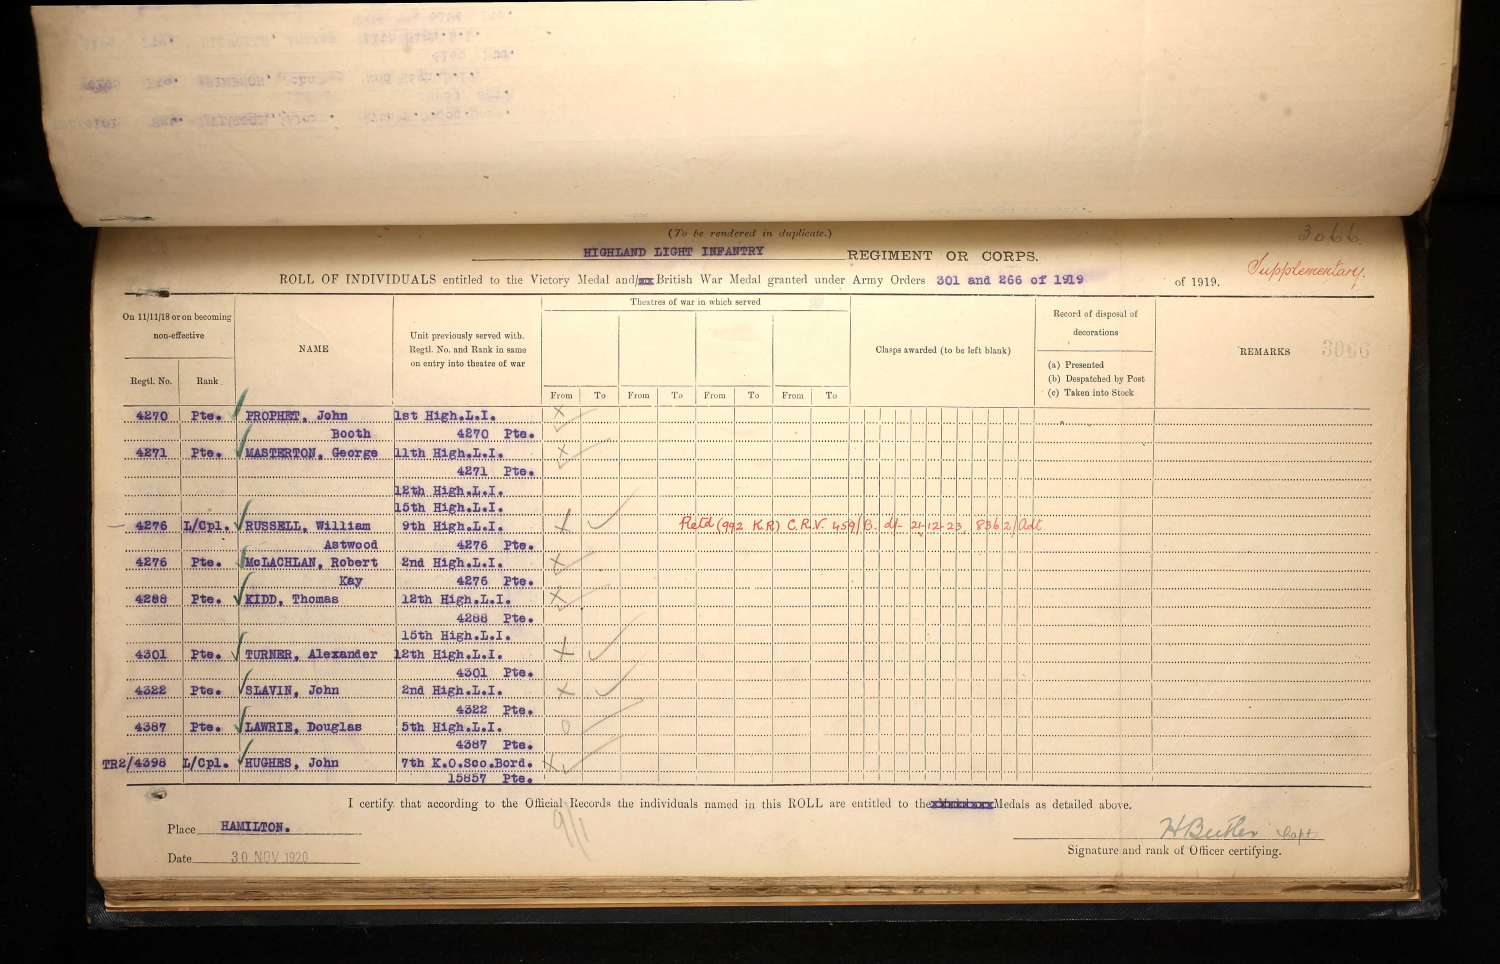 (To be rendered in duplicate.)
3066
HIGHLAND LIGHT INFANTRY REGIMENT OR CORPS.
Supplementary.
ROLL OF INDIVIDUALS entitled to the Victory Medal and/ British War Medal granted under Army Orders 301 and 266 of 1919 of 1919.
On 11/11/18 or on becoming non-effective
Regtl. No. Rank
NAME
Unit previously served with.
Regtl. No. and Rank in same
on entry into theatre of war
Theatres of war in which served
From To From To From To From To
Clasps awarded (to be left blank)
Record of disposal of
decorations
(a) Presented
(b) Despatched by Post
(c) Taken into Stock
REMARKS 3066
4270 Pte. PROPHET, John 1st High.L.I. X
Booth 4270 Pte.
4271 Pte. MASTERTON, George 11th High.L.I. X
4271 Pte.
12th High.L.I.
15th High.L.I.
4276 L/Cpl. RUSSELL, William 9th High.L.I. X Retd (992 K.R) C.R.V. 459/B. d/- 21-12-23, 8362/Adt
Astwood 4276 Pte.
4276 Pte. McLACHLAN, Robert 2nd High.L.I. X
Kay 4276 Pte.
4288 Pte. KIDD, Thomas 12th High.L.I. X
4288 Pte.
15th High.L.I.
4301 Pte. TURNER, Alexander 12th High.L.I. X
4301 Pte.
4322 Pte. SLAVIN, John 2nd High.L.I. X
4322 Pte.
4387 Pte. LAWRIE, Douglas 5th High.L.I. 0
4387 Pte.
TR2/4398 L/Cpl. HUGHES, John 7th K.O.Sco.Bord. X
15857 Pte.
I certify that according to the Official Records the individuals named in this ROLL are entitled to the Medals as detailed above.
Place HAMILTON. 9/1
H Butler Capt
Signature and rank of Officer certifying.
Date 30 NOV 1920